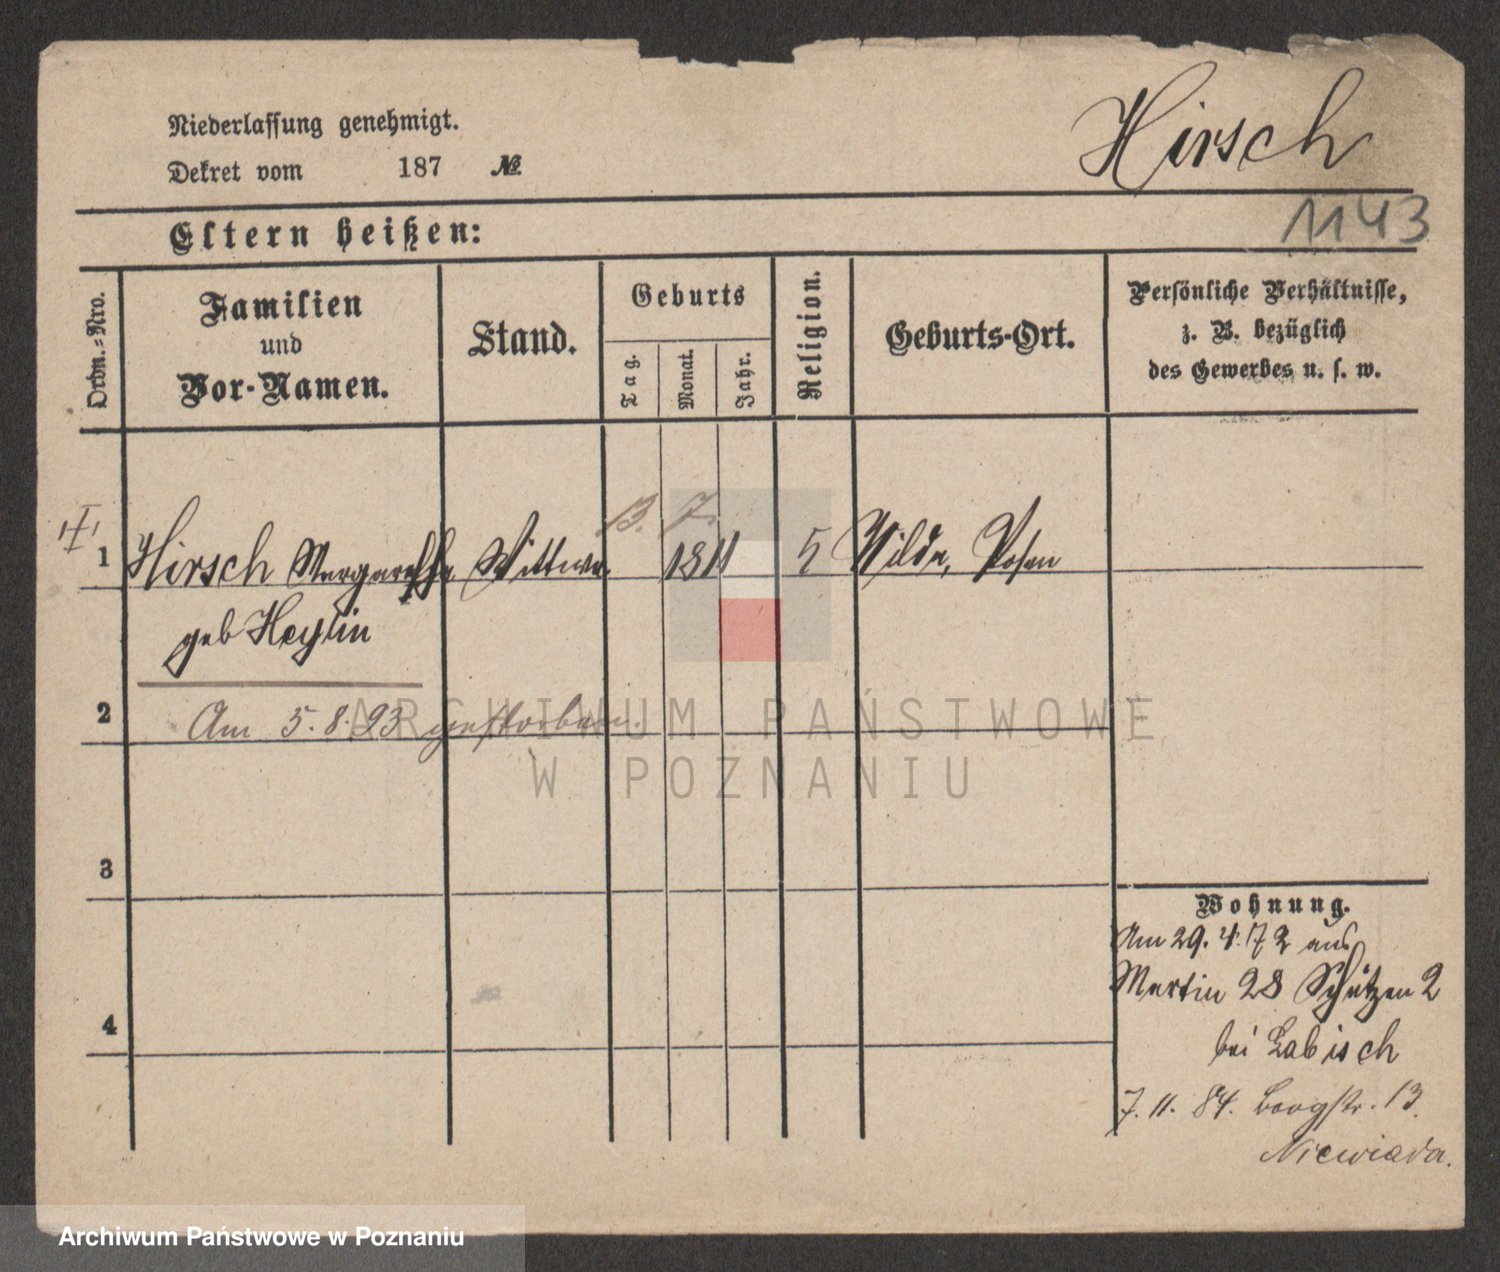 Niederlassung genehmigt.
Dekret vom 187 №
Hirsch
1143
Eltern heißen:
Ordn.-Nro.
Familien
und
Vor-Namen.
Stand.
Geburts
Tag.
Monat.
Jahr.
Religion.
Geburts-Ort.
Persönliche Verhältnisse,
z. B. bezüglich
des Gewerbes u. s. w.
13. 7.
1 Hirsch Margarethe Wittwe 1811 Wilda, Posen
geb Heylin
2 Am 5.8.93 gestorben.
3
4
Wohnung.
Am 29.4.72 aus
Martin 28 Schützen 2
bei Labisch
7.11.84. Bergstr. 13.
Niewiada.
ARCHIWUM PAŃSTWOWE
W POZNANIU
Archiwum Państwowe w Poznaniu